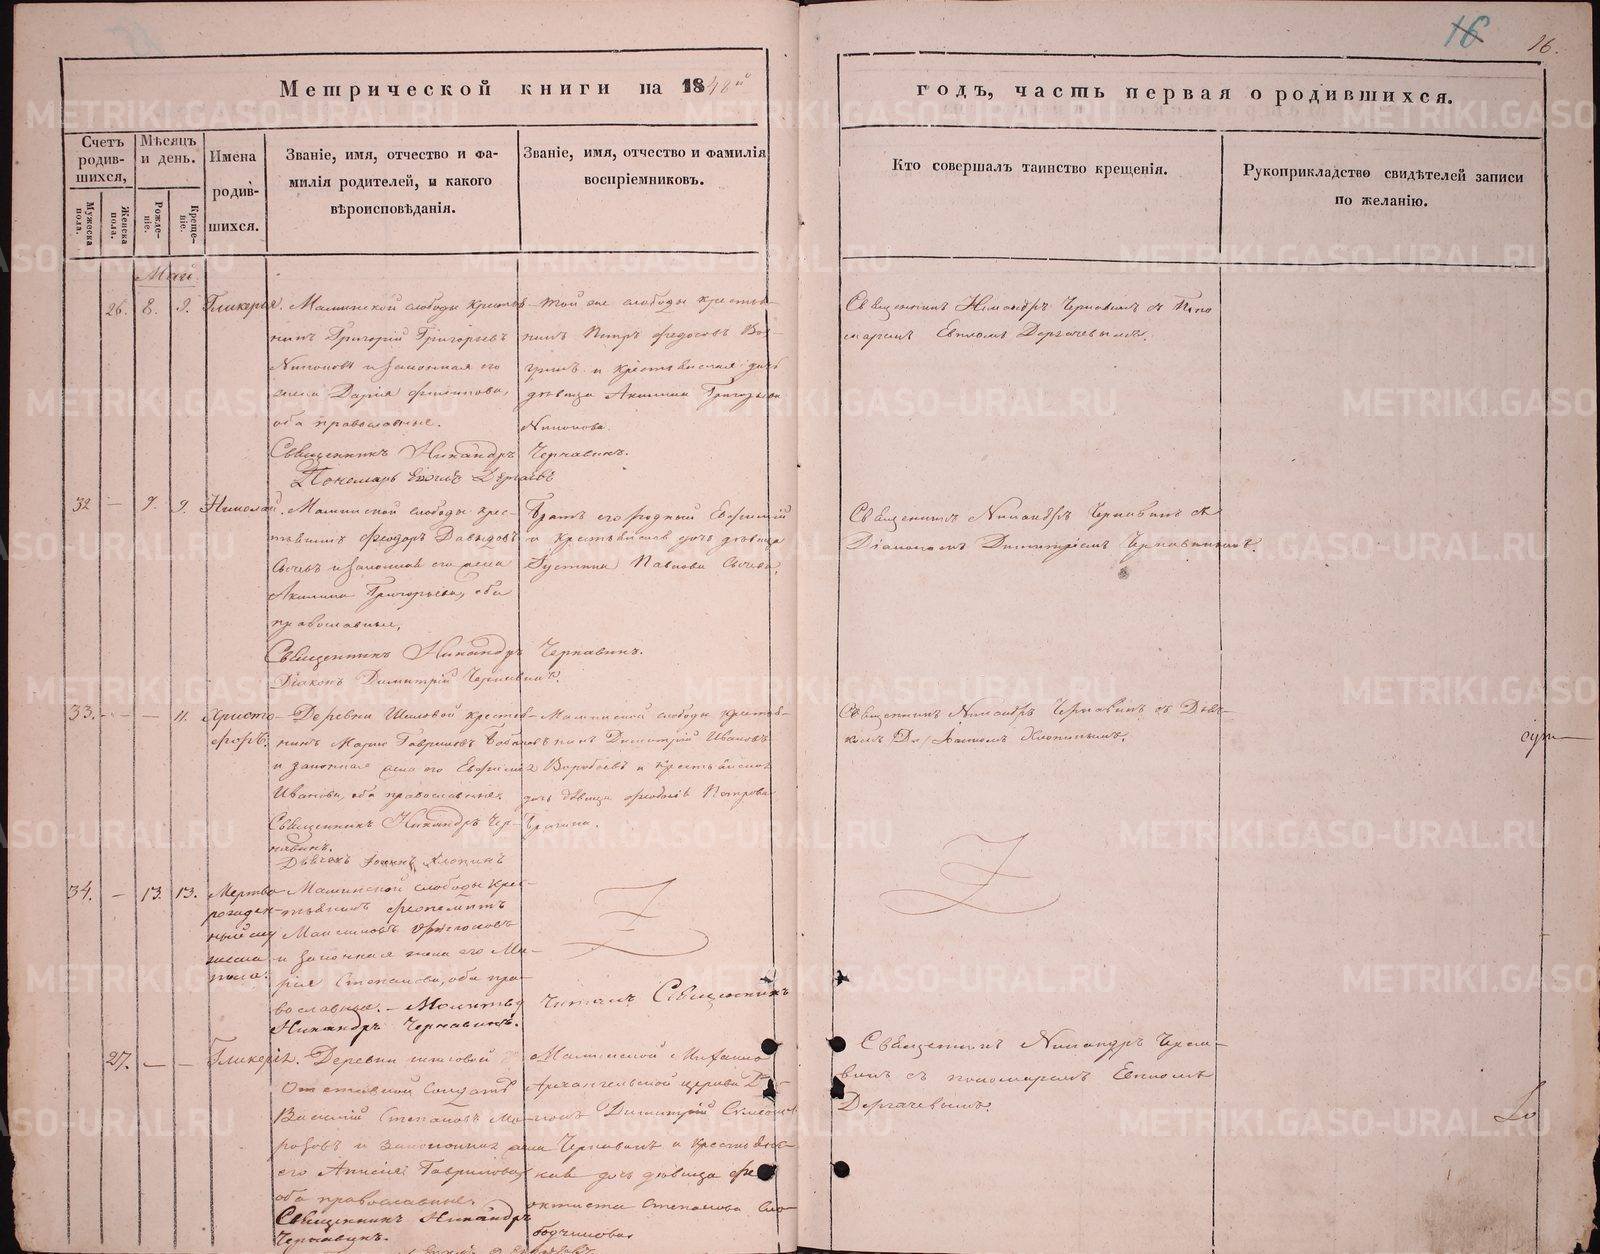 Метрической книги на 1848й
годъ, часть первая о родившихся.
16
16.
Счетъ родившихся,
Мужеска пола.
Женска пола.
Мѣсяцъ и день.
Рожденіе.
Крещеніе.
Имена родившихся.
Званіе, имя, отчество и фамилія родителей, и какого вѣроисповѣданія.
Званіе, имя, отчество и фамилія воспріемниковъ.
Кто совершалъ таинство крещенія.
Рукоприкладство свидѣтелей записи по желанію.
Май
26. 8. 9. Гликерія.
Маминской слободы крестья-
нинъ Григорій Григорьевъ
и законная его
жена Дарія
оба православные.
Священникъ Никандръ Чернавинъ.
Пономарь Дергачевъ
Той же слободы крестья-
нинъ Петръ Федосѣевъ
и крестьянская дочь
дѣвица Акилина Григорьева
Священникъ Никандръ Чернавинъ съ Поно
маремъ Дергачевымъ.
32 — 9. 9. Николай.
Маминской слободы крес-
тьянинъ Феодоръ Давыдовъ
Сычевъ и законная его жена
Акилина Григорьева, оба
православные,
Священникъ Никандръ Чернавинъ.
Діаконъ Димитрій Чернавинъ.
Братъ его родный Евфимій
и крестьянская дочь дѣвица
Іустина Павлова Сычева.
Священникъ Никандръ Чернавинъ съ
Діакономъ Димитріемъ Чернавинымъ.
33. — — 11. Христо-
форъ.
Деревни Шиловой крестья-
нинъ Гавриловъ
и законная жена его Евфимія
Иванова, оба православные.
Священникъ Никандръ Чер-
навинъ.
Дьячокъ Іоаннъ Клопинъ
Маминской слободы крестья-
нинъ Димитрій Ивановъ
Воробьевъ и крестьянская
дочь дѣвица Петрова
Священникъ Никандръ Чернавинъ съ Дьяч-
комъ Іоанномъ Клопинымъ.
34. — 13. 13. Мертво
рожден-
ный му
жеска
пола.
Маминской слободы крес-
тьянинъ
Максимовъ
и законная жена его Ма-
рія Степанова, оба пра-
вославные. — Молитву читалъ Священникъ
Никандръ Чернавинъ.
27. — — Гликерія.
Деревни Шиловой
Отставной Солдатъ
Василій Степановъ Мо-
розовъ и законная жена
его Анисія Гаврилова,
оба православные.
Священникъ Никандръ
Чернавинъ.
Маминской Михаило
Архангельской церкви Ді-
аконъ Димитрій
Чернавинъ и крестьянс-
кая дочь дѣвица Фе
октиста Степанова Сло
бодчикова
Священникъ Никандръ Черна-
винъ съ пономаремъ
Дергачевымъ.
METRIKI.GASO-URAL.RU